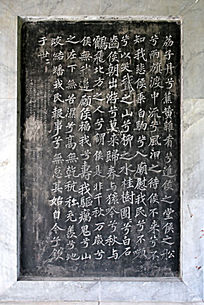 荔子丹兮蕉黃雜肴兮進侯之堂侯之船
兮兩旗渡中流兮風汩之待侯不來兮不
知我悲侯乘白駒兮入廟慰我民兮不嚬
兮以笑鵝之山兮柳之水桂樹團團兮白石
齒齒侯朝出游兮莫來歸春與猨吟兮秋與
鶴飛北方之人兮謂侯是非千秋萬歲兮
侯無我違願侯福我兮壽我驅厲鬼兮山
之左下無苦濕兮高無乾秔稌充羨兮蛇
蛟結蟠我民報事兮無怠其始自今兮欽
于世世